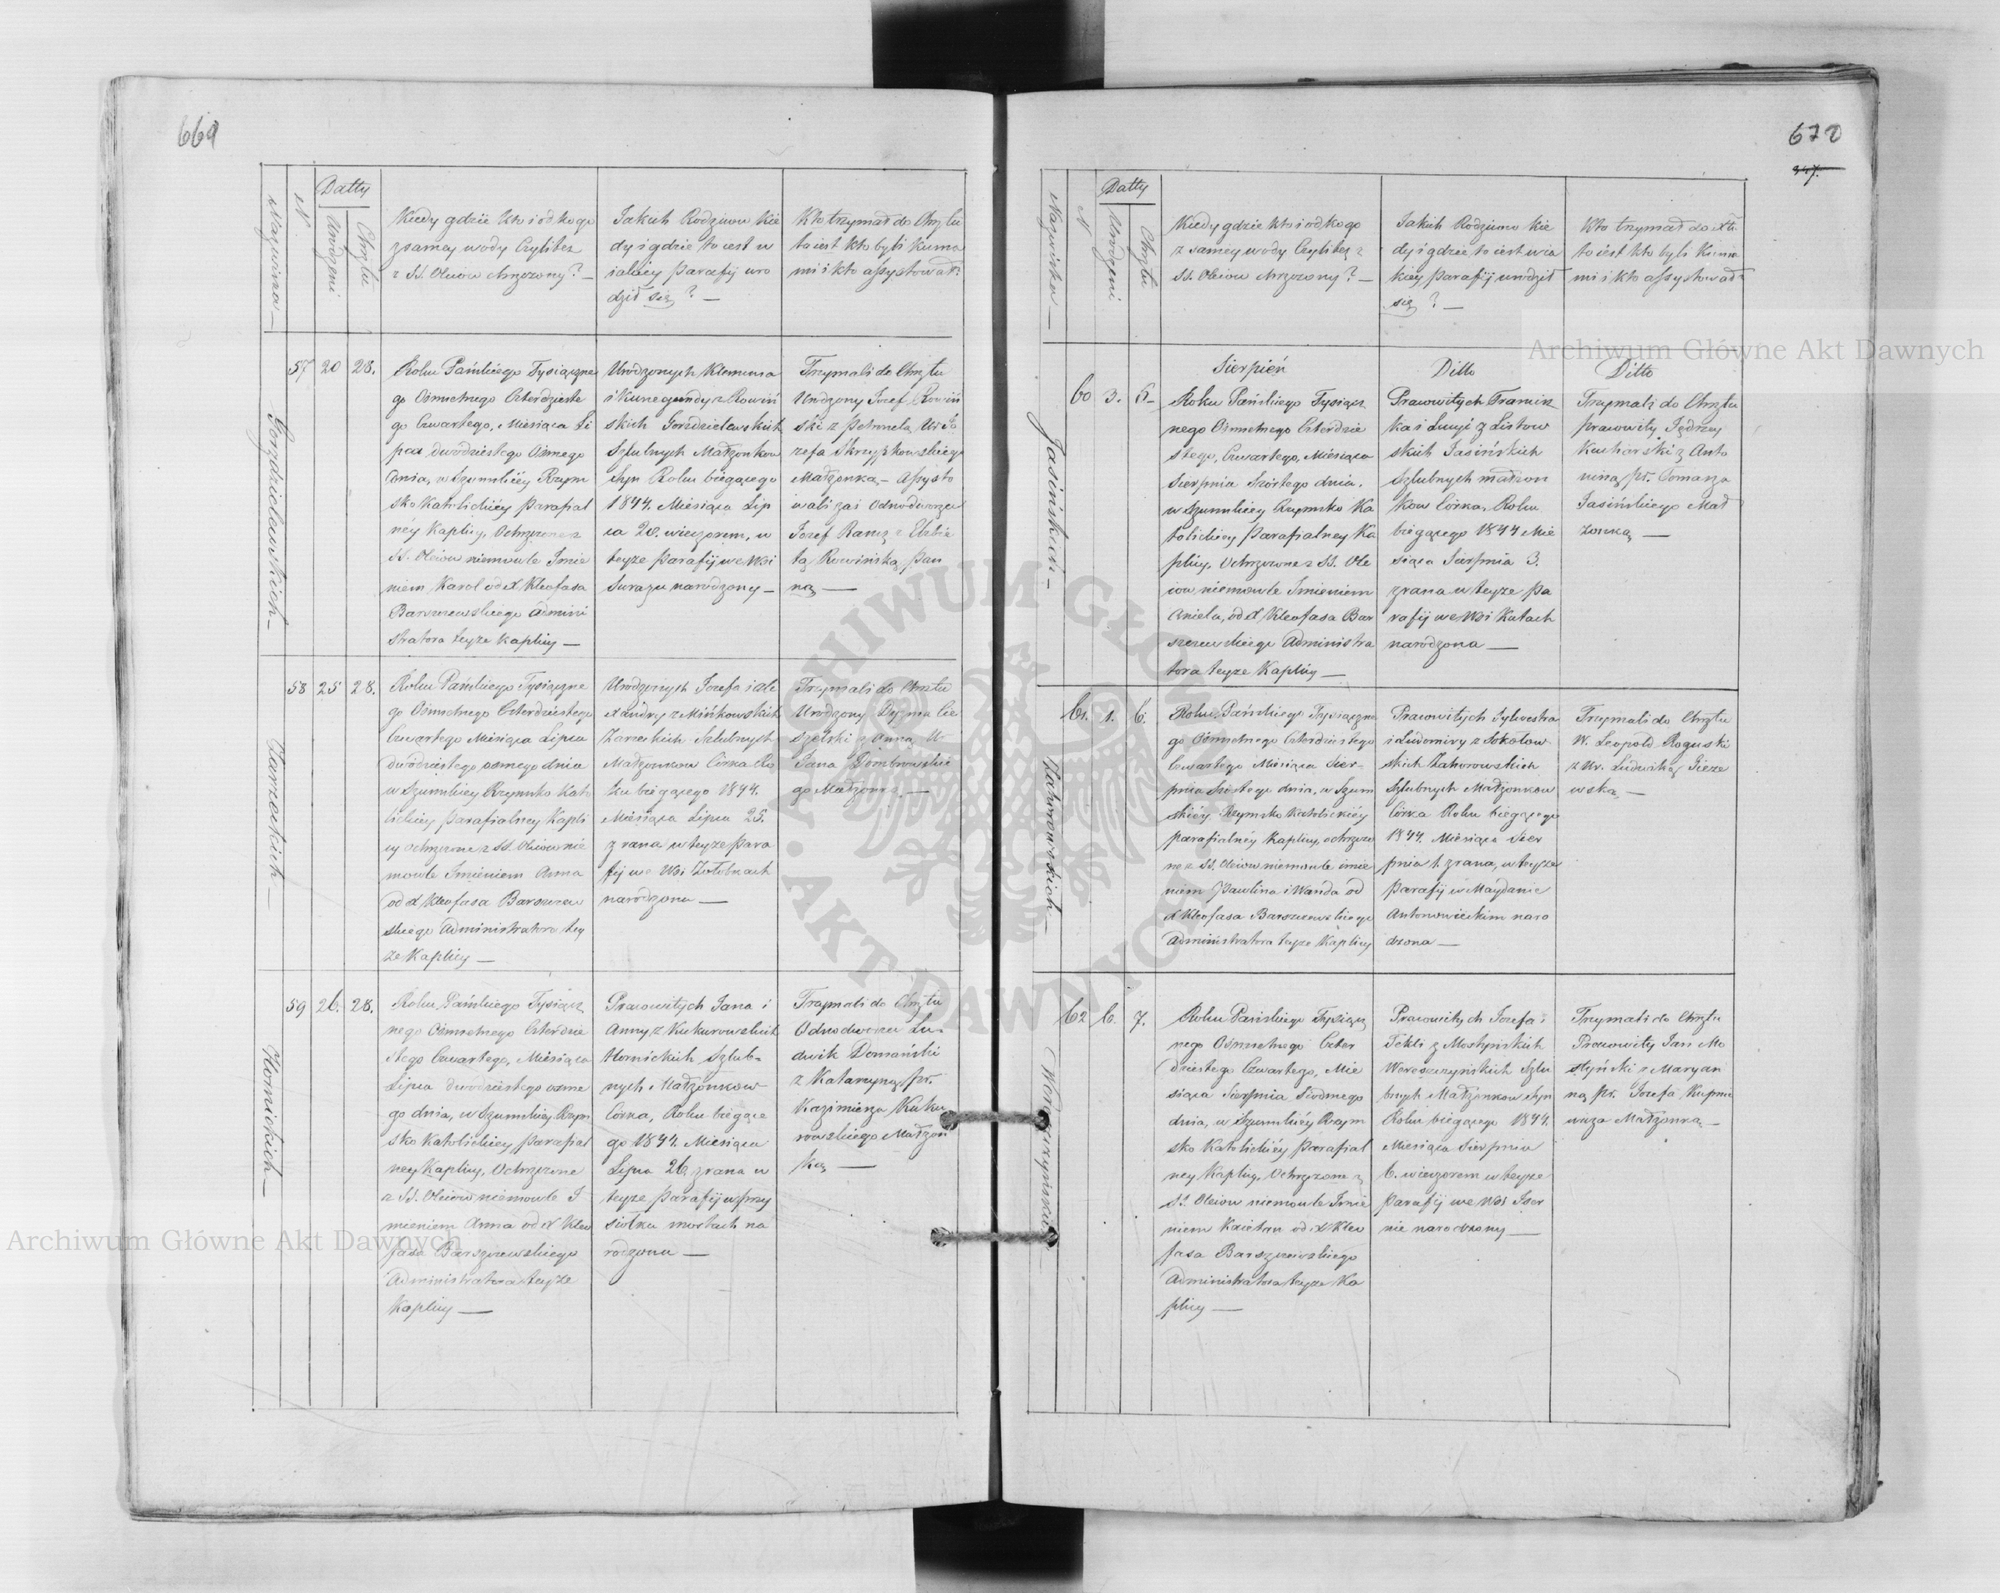 669
Datty
Nazwiska
N.
Urodzeni
Chrztu
Kiedy gdzie kto i od kogo
z samey wody Czyli też
z SS. Oleiow chrzczony? —
Jakich Rodziców kie
dy i gdzie to iest w
iakiey Parafij uro
dził się? —
Kto trzymał do Chrztu
to iest kto byli Kuma
mi i kto assystował?
57 20 28.
Gorzdzielewskich —
Roku Pańskiego Tysiączne
go Ośmsetnego Czterdzieste
go Czwartego, Miesiąca Li
pca, dwódziestego Osmego
dnia, w Szumskiey Rzym
sko Katolickiey Parafial
néy Kaplicy, Ochrzczone z
SS. Oleiow niemowle Imie
niem Karol od X Kleofasa
Barszczewskiego Admini
stratora teyże Kaplicy —
Urodzonych Klemensa
i Kunegundy z Rowiń
skich Gorzdzielewskich
Szlubnych Małżonkow
Syn Roku bieżącego
1844. Miesiąca Lip
ca 20. wieczorem, w
teyże Parafij we Wsi
Surażu narodzony —
Trzymali do Chrztu
Urodzony Jozef Rowiń
ski z Petronelą Ur. Jo
zefa Skrzypkowskiego
Małżonką — Assysto
wali zaś Odnodworzec
Jozef Ramz z Elzbie
tą Rowińską Pan
ną —
58 25 28.
Zarzeckich —
Roku Pańskiego Tysiączne
go Ośmsetnego Czterdziestego
Czwartego Miesiąca Lipca
dwódziestego osmego dnia
w Szumskiey Rzymsko Kato
lickiey Parafialney Kapli
cy ochrzczone z SS. Oleiow nie
mowle Imieniem Anna
od X Kleofasa Barszczew
skiego Administratora tey
że Kaplicy —
Urodzonych Jozefa i Ale
xandry z Mińkowskich
Zarzeckich Szlubnych
Małżonkow Córka Ro
ku bieżącego 1844.
Miesiąca Lipca 25.
z rana w teyże Para
fij we Wsi Żołobnach
narodzona —
Trzymali do Chrztu
Urodzony Dyzma Cie
szelski z Anną U.
Jana Dombrowskie
go Małżonką —
59 26. 28.
Hornickich —
Roku Pańskiego Tysiącz
nego Ośmsetnego Czterdzie
stego Czwartego, Miesiąca
Lipca dwódziestego osme
go dnia, w Szumskiey Rzym
sko Katolickiey Parafial
ney Kaplicy, Ochrzczone
z SS. Oleiow niemowle I
mieniem Anna od X Kleo
fasa Barszczewskiego
Administratora teyże
Kaplicy —
Pracowitych Jana i
Anny z Kukurowskich
Hornickich Szlub-
nych Małżonkow
Córka, Roku bieżące
go 1844. Miesiąca
Lipca 26 z rana w
teyże Parafij w Przy
siołku Mostach na
rodzona —
Trzymali do Chrztu
Odnodworzec Lu-
dwik Domański
z Katarzyną Pr.
Kazimierza Kuku
rowskiego Małżon
ką —
670
347.
Datty
Nazwiska —
N
Urodzeni
Chrztu
Kiedy gdzie kto i od kogo
z samey wody Czyli też z
SS. Oleiow chrzczony? —
Jakich Rodziców kie
dy i gdzie, to iest w ia
kiey Parafij urodził
się? —
Kto trzymał do Xtu
to iest kto byli Kuma
mi i kto assystował?
Sierpień
Ditto
Ditto
60 3. 6.
Jasińskich —
Roku Pańskiego Tysiącz
nego Ośmsetnego Czterdzie
stego, Czwartego, Miesiąca
Sierpnia Szóstego dnia.
w Szumskiey Rzymsko Ka
tolickiey Parafialney Ka
plicy, Ochrzczone z SS. Ole
iow niemowle Imieniem
Aniela, od X Kleofasa Bar
szczewskiego Administra
tora teyże Kaplicy —
Pracowitych Francisz
ka i Lucyi z Listow
skich Jasińskich
Szlubnych Małżon
kow Córka, Roku
bieżącego 1844 Mie
siąca Sierpnia 3.
z rana w teyże Pa
rafij we Wsi Katach
narodzona —
Trzymali do Chrztu
pracowity Jędrzey
Kucharski z Anto
niną Pr. Tomasza
Jasińskiego Mał
żonką —
61. 1. 6.
Zahorowskich —
Roku Pańskiego Tysiączne
go Ośmsetnego Czterdziestego
Czwartego Miesiąca Sier-
pnia Szóstego dnia, w Szum
skiéy Rzymsko Katolickiéy
Parafialnéy Kaplicy, ochrzczo
ne z SS. Oleiow niemowle imie
niem Paulina i Wanda od
X Kleofasa Barszczewskiego
Administratora teyże Kaplicy
Pracowitych Sylwestra
i Ludomiry z Sokołow
skich Zahorowskich
Szlubnych Małżonkow
Córka Roku bieżącego
1844. Miesiąca Sier
pnia 1. z rana, w teyże
Parafij w Maydanie
Antonowieckim naro
dzona —
Trzymali do Chrztu
W. Leopold Roguski
z Ur. Ludwiką Jeze
wską —
62 6. 7.
Wereszczyńskich
Roku Pańskiego Tysiącz
nego Ośmsetnego Czter
dziestego Czwartego, Mie
siąca Sierpnia Siódmego
dnia, w Szumskiéy Rzym
sko Katolickiéy Parafial
ney Kaplicy, Ochrzczone z
SS. Oleiow niemowle Imie
niem Kaietan od X Kleo
fasa Barszczewskiego
Administratora teyże Ka
plicy —
Pracowitych Jozefa i
Tekli z Mostyńskich
Wereszczyńskich Szlu
bnych Małżonkow Syn
Roku bieżącego 1844.
Miesiąca Sierpnia
6. wieczorem w teyże
Parafij we Wsi Iser
nie narodzony —
Trzymali do Chrztu
Pracowity Jan Mo
styński z Maryan
ną Pr. Jozefa Kupnie
wicza Małżonką —
Archiwum Główne Akt Dawnych
Archiwum Główne Akt Dawnych
ARCHIWUM GŁÓWNE AKT DAWNYCH